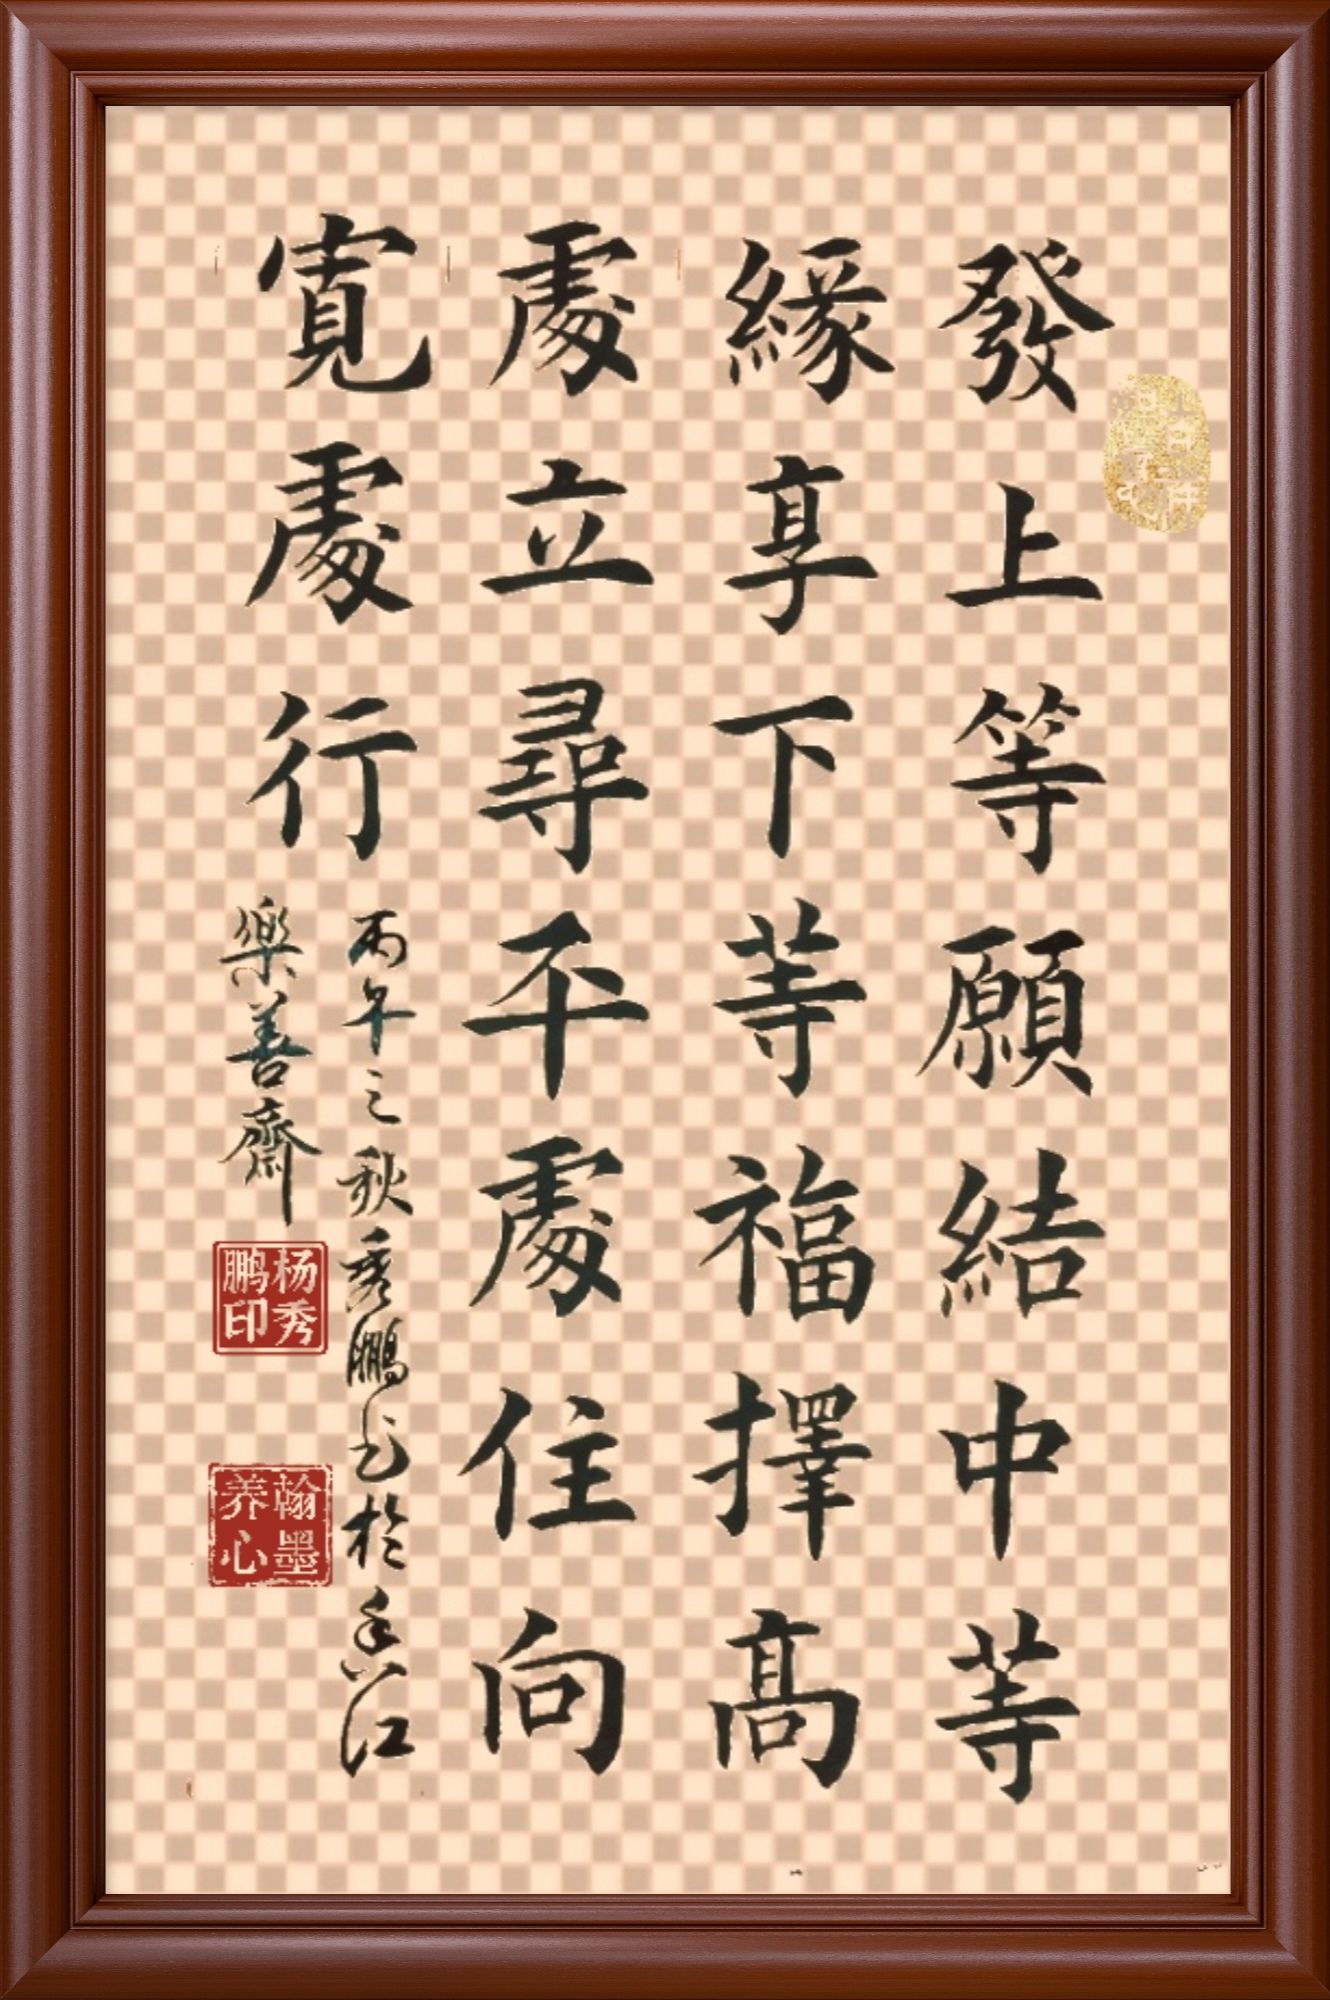 發上等願結中等
緣享下等福擇高
處立尋平處住向
寬處行
丙午之秋秀鵬书於香江
樂善齋
杨秀鹏印
翰墨养心